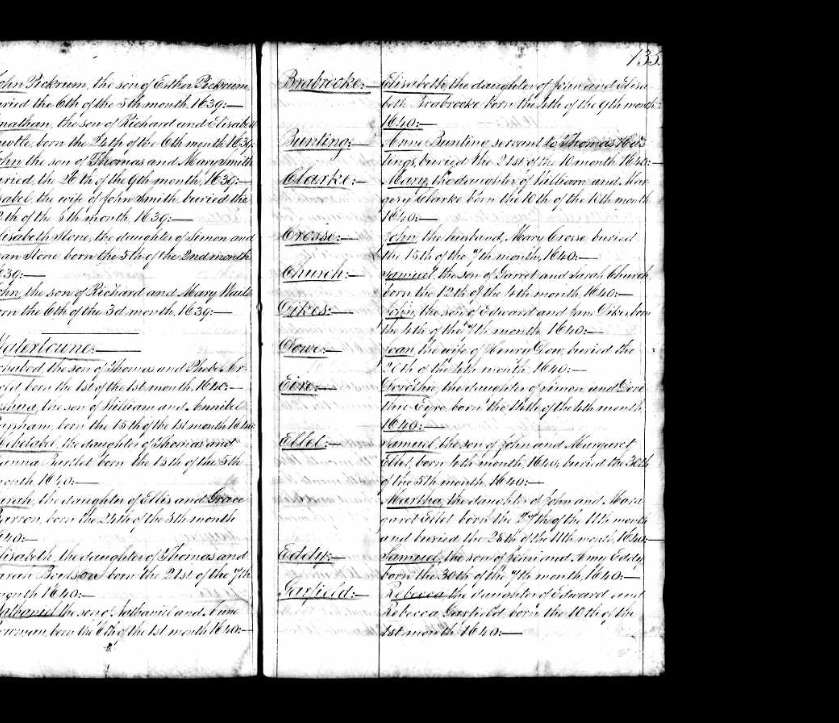 John Pickrum, the son of Esther Pickrum,
buried the 6th of the 5th month. 1639:—
Jonathan, the son of Richard and Elisabeth
born the 24th of the 6th month 1639
John the son of Thomas and Mary Smith
buried, the 26th of the 9th month, 1639:—
Isabel, the wife of John Smith, buried the
th of the 8th month. 1639:—
Elisabeth Stone, the daughter of Simon and
Joan Stone born the 5th of the 2nd month
1639:—
John, the son of Richard and Mary Waite
born the 6th of the 3d month. 1639:—
Watertowne:—
the son of Thomas and Phebe Ar-
nold born the 1st of the 1st month. 1640:—
Joshua, the son of William and Annibel
Barnham, born the 15th of the 1st month 1640
Mehetabel, the daughter of Thomas and
Hanna Bartlet born the 15th of the 5th
month. 1640:—
Sarah, the daughter of Ellis and Grace
Barron, born the 24th of the 5th month
1640:—
Elisabeth, the daughter of Thomas and
born the 21st of the 7th
month 1640:—
Nathaniel the son of Nathaniel and Anne
Bowman, born the 6th of the 1st month 1640:—
135
Brabrooke:— Elisabeth, the daughter of John and Elisa-
beth Brabrooke born the 4th of the 9th month:
1640:—
Bunting:— Anne Bunting servant to Thomas Has-
tings, buried the 21st of the 10 month 1640:—
Clarke:— Mary, the daughter of William and Mar-
gery Clarke born the 10th of the 10th month
1640:—
Crosse:— John the husband, Mary Crosse buried
the 15th of the 7th month, 1640:—
Church:— Samuel the son of Garret and Sarah Church
born the 12th of the 4th month 1640:—
Dikes:— John, the son of Edward and Dikes born
the 4th of the 7th month 1640:—
Dowe:— Joan, the wife of Henry Dow, buried the
20th of the 4th month. 1640:—
Eire:— Dorothie, the daughter of Simon and Doro-
thie Eyre born the 14th of the 4th month
1640:—
Ellet:— Samuel the son of John and Margaret
Ellet, born 4th month, 1640, buried the 30th
of the 5th month, 1640:—
Martha, the daughter of John and Mar-
garet Ellet born the 27th of the 11th month
and buried the 28th of the 11th month 1640:—
Eddy:— Samuel, the son of John and Amie Eddy
born the 30th of the 7th month, 1640:—
Garfield:— Rebecca the daughter of Edward and
Rebecca Garfield born the 10th of the
1st month 1640:—